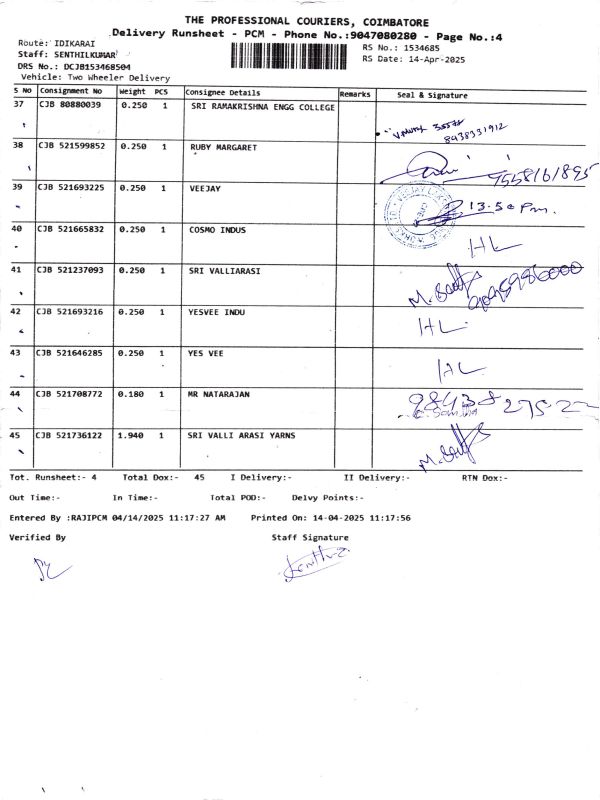 THE PROFESSIONAL COURIERS, COIMBATORE
Delivery Runsheet - PCM - Phone No.:9047080280 - Page No.:4
Route: IDIKARAI
Staff: SENTHILKUMAR
DRS No.: DCJB153468504
Vehicle: Two Wheeler Delivery
RS No.: 1534685
RS Date: 14-Apr-2025
S No Consignment No Weight PCS Consignee Details Remarks Seal & Signature
37 CJB 80880039 0.250 1 SRI RAMAKRISHNA ENGG COLLEGE
8438331912
38 CJB 521599852 0.250 1 RUBY MARGARET
9558161895
39 CJB 521693225 0.250 1 VEEJAY
13.50 Pm.
40 CJB 521665832 0.250 1 COSMO INDUS
HL
41 CJB 521237093 0.250 1 SRI VALLIARASI
42 CJB 521693216 0.250 1 YESVEE INDU
HL
43 CJB 521646285 0.250 1 YES VEE
HL
44 CJB 521708772 0.180 1 MR NATARAJAN
98438 27522
45 CJB 521736122 1.940 1 SRI VALLI ARASI YARNS
Tot. Runsheet:- 4 Total Dox:- 45 I Delivery:- II Delivery:- RTN Dox:-
Out Time:- In Time:- Total POD:- Delvy Points:-
Entered By :RAJIPCM 04/14/2025 11:17:27 AM Printed On: 14-04-2025 11:17:56
Verified By Staff Signature